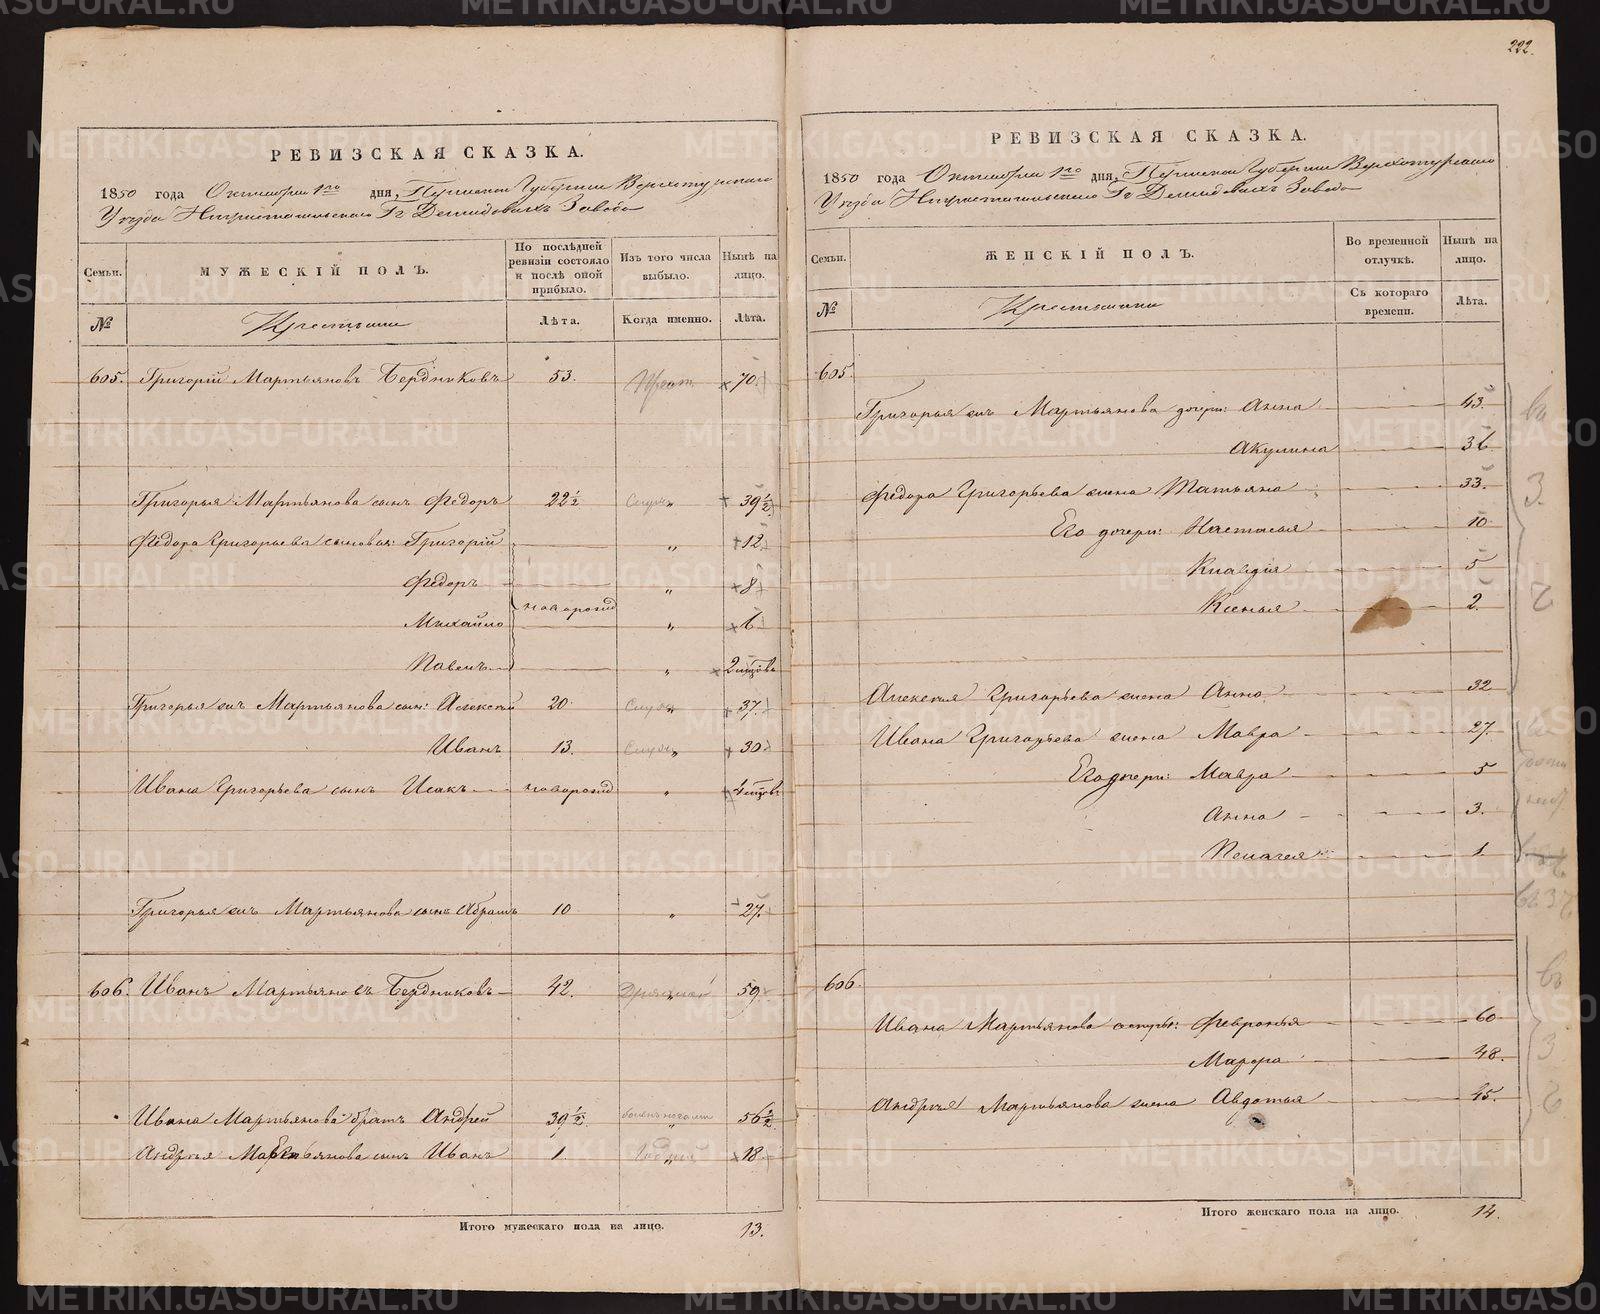 222.
РЕВИЗСКАЯ СКАЗКА.
1850 года Октября 1го дня, Пермской Губернии Верхотурского
Уезда Нижнетагильского Гг Демидовыхъ Завода
Семьи.
МУЖЕСКІЙ ПОЛЪ.
По послѣдней ревизіи состояло и послѣ оной прибыло.
Изъ того числа выбыло.
Нынѣ на лицо.
№
Крестьяне
Лѣта.
Когда именно.
Лѣта.
605. Григорій Мартьяновъ Бердниковъ 53. 70.
Григорья Мартьянова сынъ Федоръ 22½ 39½
Федора Григорьева сыновья: Григорій " 12.
Федоръ " 8
новорожд
Михайло " 6
Павелъ "
Григорья жъ Мартьянова сын: Алексей 20. " 37.
Иванъ 13. " 30
Ивана Григорьева сынъ Исакъ новорожд "
Григорья жъ Мартьянова сынъ Абрамъ 10 " 27.
606. Иванъ Мартьяновъ Бердниковъ 42. " 59
Ивана Мартьянова братъ Андрей 39½ " 56½
Андрея Мартьянова сынъ Иванъ 1. " 18
Итого мужескаго пола на лицо. 13.
РЕВИЗСКАЯ СКАЗКА.
1850 года Октября 1го дня, Пермской Губернии Верхотурского
Уезда Нижнетагильского Гг Демидовыхъ Завода
Семьи.
ЖЕНСКІЙ ПОЛЪ.
Во временной отлучкѣ.
Нынѣ на лицо.
№
Крестьянки
Съ котораго времени.
Лѣта.
605.
Григорья жъ Мартьянова дочери: Анна 43.
Акулина 36
Федора Григорьева жена Татьяна 33.
Его дочери: Настасья 10
Клавдія 5
Ксенья 2.
Алексея Григорьева жена Анна 32
Ивана Григорьева жена Мавра 27.
Его дочери: Мавра 5
Анна 3.
Пелагея 1.
606.
Ивана Мартьянова сестры: Февронья 60
Марфа 48.
Андрея Мартьянова жена Авдотья 45.
Итого женскаго пола на лицо. 14.
METRIKI.GASO-URAL.RU